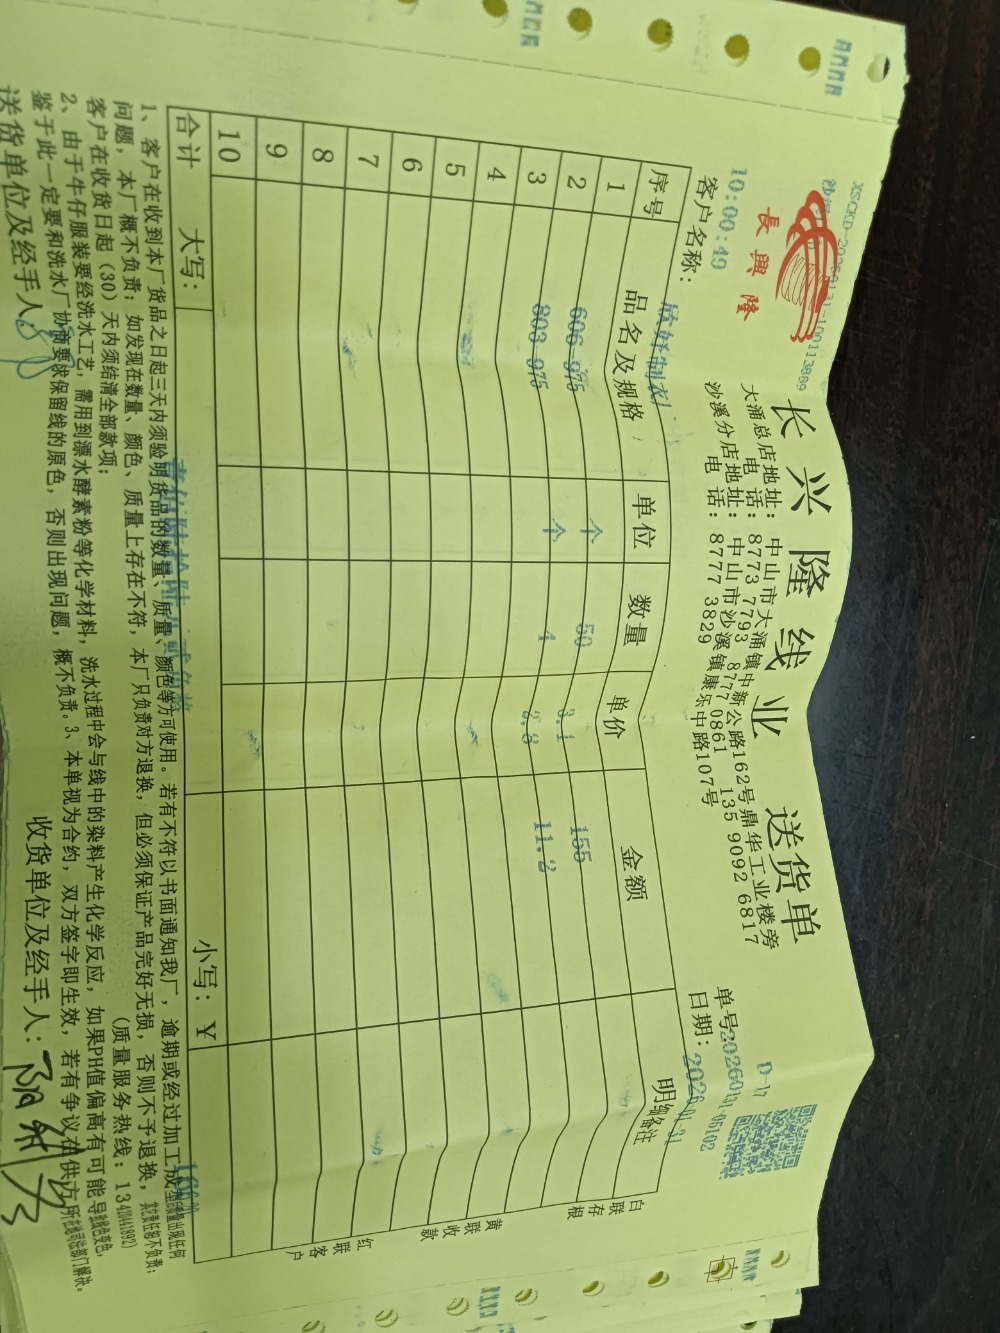 长兴隆线业 送货单
長興隆
大涌总店地址：中山市大涌镇中新公路162号鼎华工业楼旁
电 话：8773 7793 8777 0861 135 9092 6817
沙溪分店地址：中山市沙溪镇康乐中路107号
电 话：8777 3829
D-17
10:00:49
单号20260131-05102
客户名称：
日期：2026-01-31
序号 品名及规格 单位 数量 单价 金额 明细备注
1
2 606 975 个 50 3.1 155
3 803 975 个 4 2.8 11.2
4
5
6
7
8
9
10
合计 大写： 小写：￥
白联存根
黄联收款
红联客户
1、客户在收到本厂货品之日起三天内须验明货品的数量、质量、颜色等方可使用。若有不符以书面通知我厂，逾期或经过加工成型质量出现任何
问题，本厂概不负责；如发现在数量、颜色、质量上存在不符，本厂只负责对方退换，但必须保证产品完好无损，否则不予退换，其它责任恕不负责；
客户在收货日起（30）天内须结清全部款项；（质量服务热线：13420441892）
2、由于牛仔服装要经洗水工艺，需用到漂水酵素粉等化学材料，洗水过程中会与线中的染料产生化学反应，如果PH值偏高有可能导致线色变色，
鉴于此一定要和洗水厂协商要求保留线的原色，否则出现问题，概不负责。3、本单视为合约，双方签字即生效，若有争议在供方所在地司法部门解决。
送货单位及经手人： 收货单位及经手人：